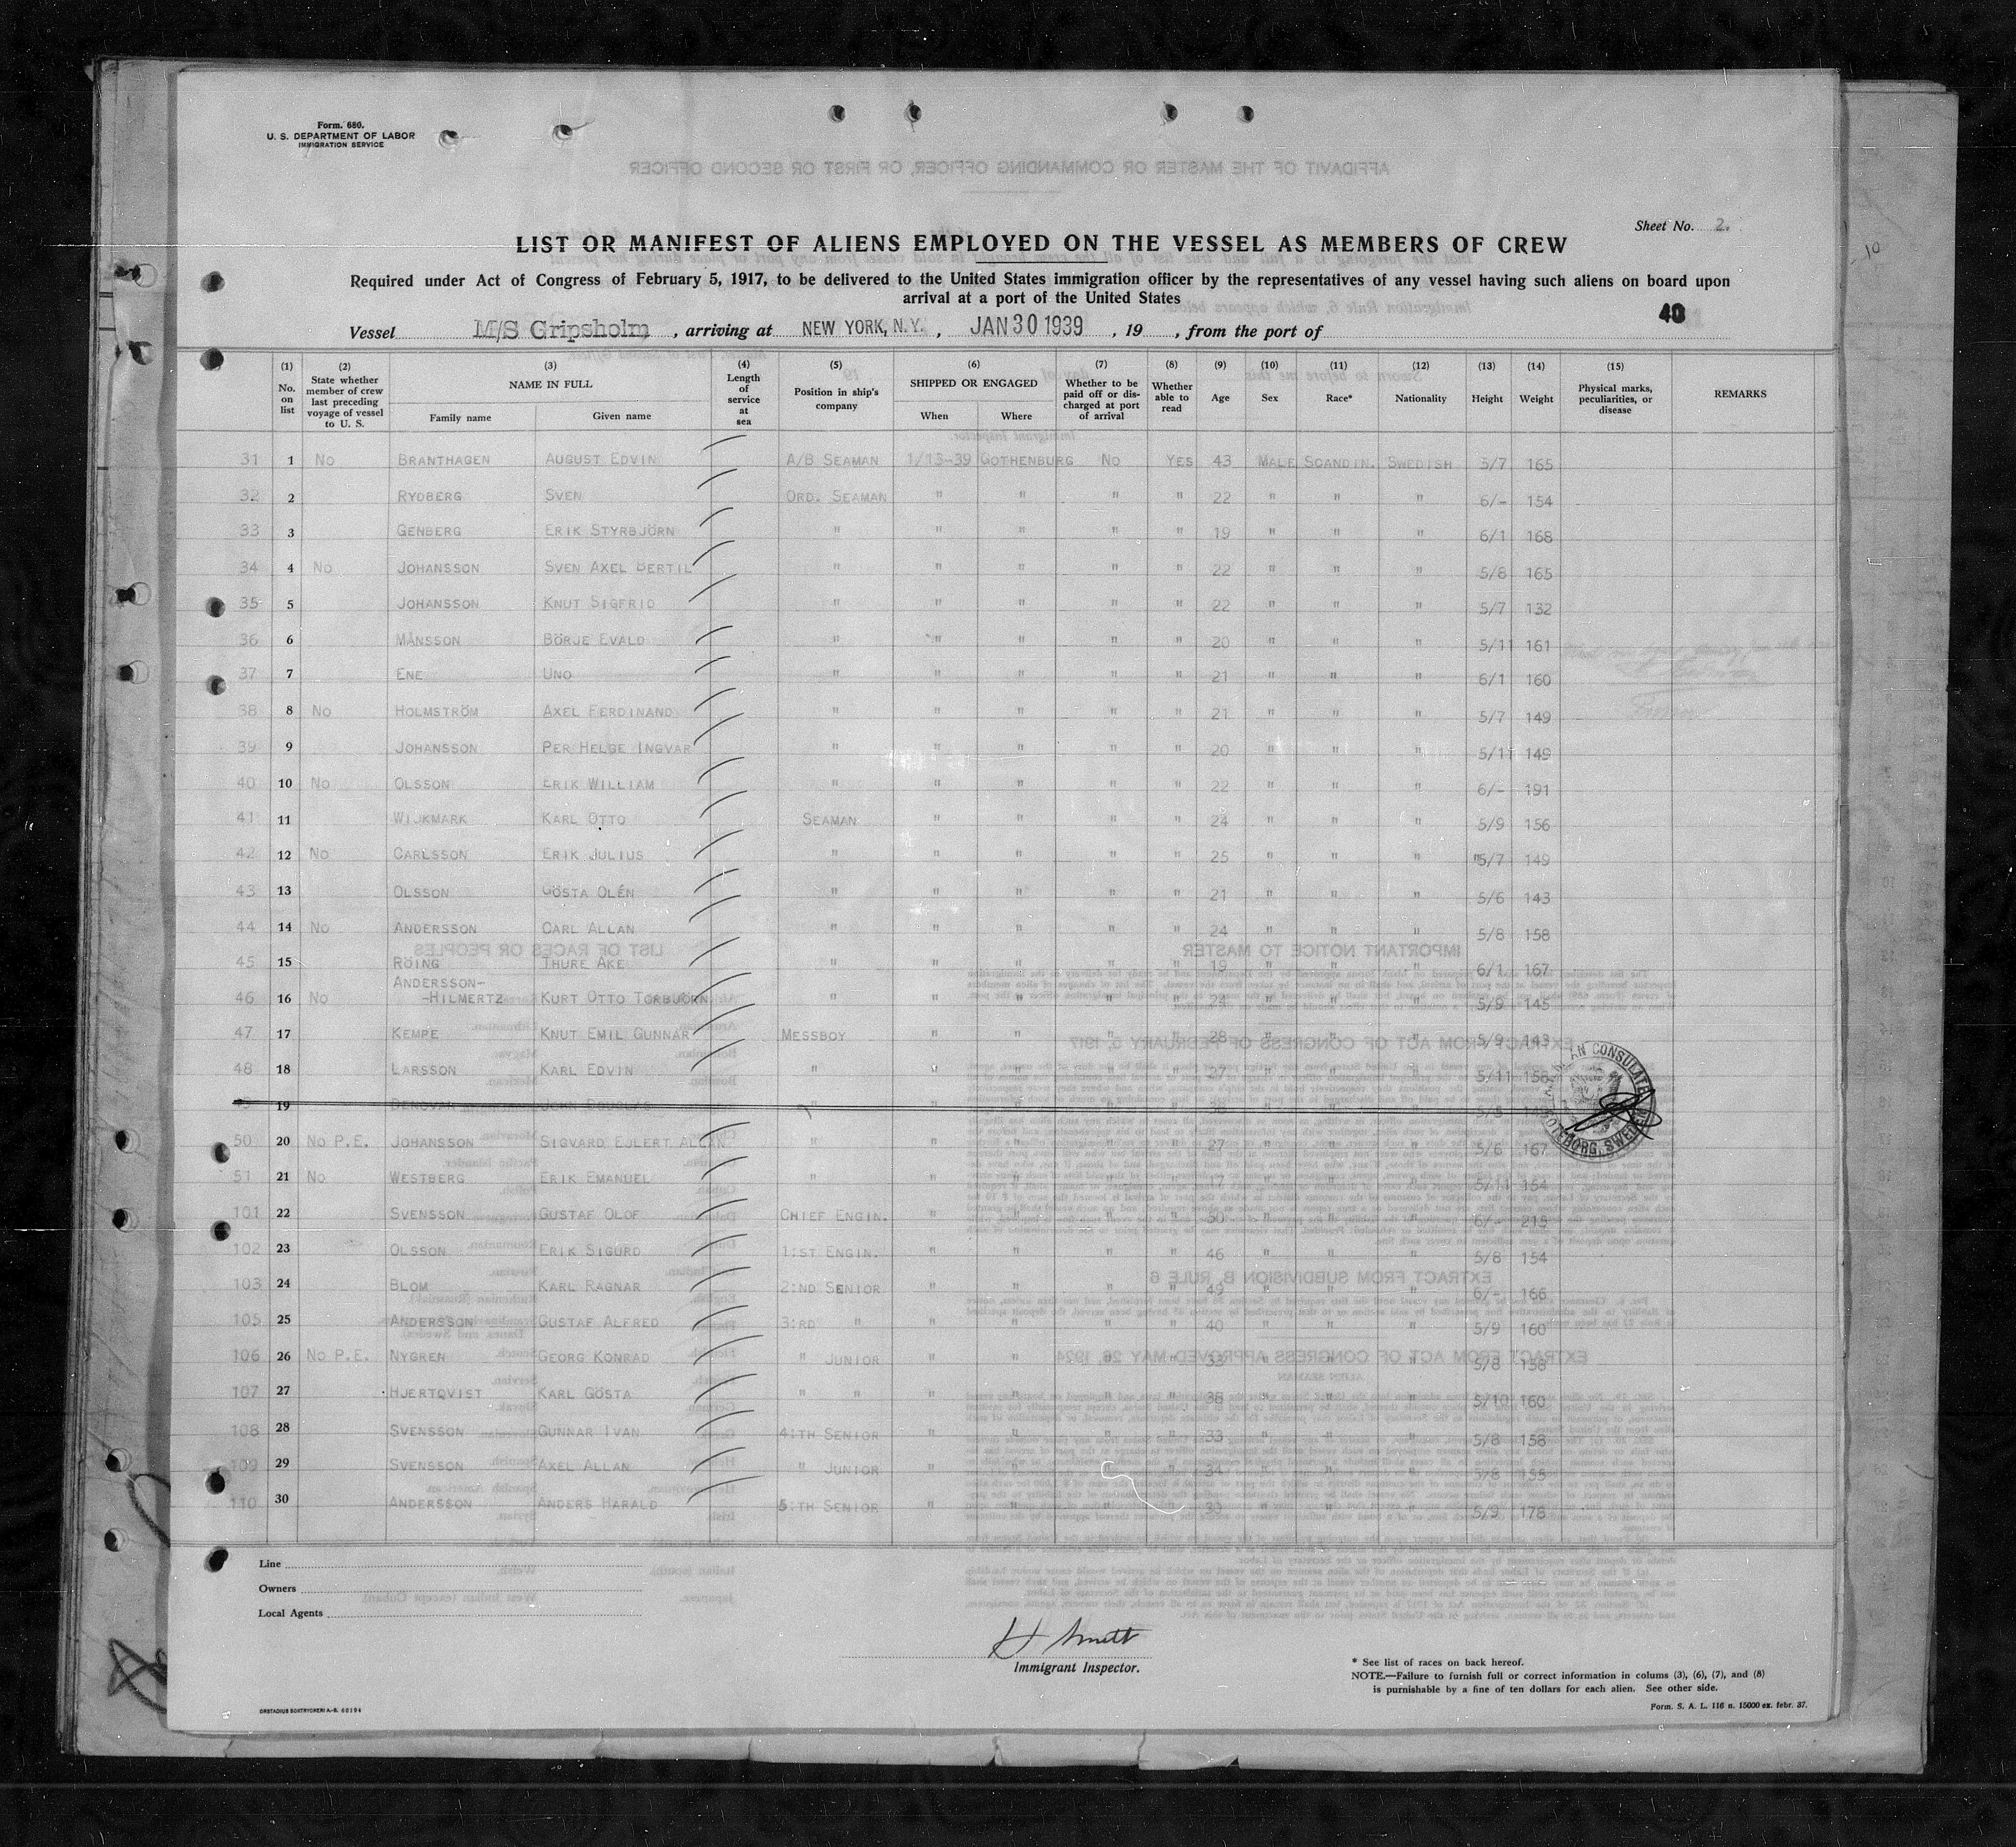 Form. 680.
U. S. DEPARTMENT OF LABOR
IMMIGRATION SERVICE
Sheet No. 2.
LIST OR MANIFEST OF ALIENS EMPLOYED ON THE VESSEL AS MEMBERS OF CREW
Required under Act of Congress of February 5, 1917, to be delivered to the United States immigration officer by the representatives of any vessel having such aliens on board upon
arrival at a port of the United States
40
Vessel M/S Gripsholm, arriving at NEW YORK, N.Y., JAN 30 1939, 19 , from the port of
(1) No. on list (2) State whether member of crew last preceding voyage of vessel to U. S. (3) NAME IN FULL Family name Given name (4) Length of service at sea (5) Position in ship's company (6) SHIPPED OR ENGAGED When Where (7) Whether to be paid off or discharged at port of arrival (8) Whether able to read (9) Age (10) Sex (11) Race* (12) Nationality (13) Height (14) Weight (15) Physical marks, peculiarities, or disease REMARKS
31 1 No BRANTHAGEN AUGUST EDVIN A/B SEAMAN 1/13-39 GOTHENBURG NO YES 43 MALE SCANDIN. SWEDISH 5/7 165
32 2 RYDBERG SVEN ORD. SEAMAN " " " " 22 " " " 6/- 154
33 3 GENBERG ERIK STYRBJÖRN " " " " " 19 " " " 6/1 168
34 4 No JOHANSSON SVEN AXEL BERTIL " " " " " 22 " " " 5/8 165
35 5 JOHANSSON KNUT SIGFRID " " " " " 22 " " " 5/7 132
36 6 MÅNSSON BÖRJE EVALD " " " " " 20 " " " 5/11 161
37 7 ENE UNO " " " " " 21 " " " 6/1 160
38 8 No HOLMSTRÖM AXEL FERDINAND " " " " " 21 " " " 5/7 149
39 9 JOHANSSON PER HELGE INGVAR " " " " " 20 " " " 5/11 149
40 10 No OLSSON ERIK WILLIAM " " " " " 22 " " " 6/- 191
41 11 WIJKMARK KARL OTTO SEAMAN " " " " 24 " " " 5/9 156
42 12 No CARLSSON ERIK JULIUS " " " " " 25 " " " "5/7 149
43 13 OLSSON GÖSTA OLÉN " " " " " 21 " " " 5/6 143
44 14 No ANDERSSON CARL ALLAN " " " " " 24 " " " 5/8 158
45 15 RÖING THURE ÅKE " " " " " 19 " " " 6/1 167
ANDERSSON-
46 16 No -HILMERTZ KURT OTTO TORBJÖRN " " " " " 24 " " " 5/9 145
47 17 KEMPE KNUT EMIL GUNNAR MESSBOY " " " " 28 " " " 5/9 143
48 18 LARSSON KARL EDVIN " " " " " 27 " " " 5/11 158
49 19 JOHN DOUGLAS " " " " " " " "
50 20 No P.E. JOHANSSON SIGVARD EJLERT ALLAN " " " " " 27 " " " 5/6 167
51 21 No WESTBERG ERIK EMANUEL " " " " " 17 " " " 5/11 154
101 22 SVENSSON GUSTAF OLOF CHIEF ENGIN. " " " " 50 " " " 6/- 215
102 23 OLSSON ERIK SIGURD 1:ST ENGIN. " " " " 46 " " " 5/8 154
103 24 BLOM KARL RAGNAR 2:ND SENIOR " " " " 49 " " " 6/- 166
105 25 ANDERSSON GUSTAF ALFRED 3:RD " " " " " 40 " " " 5/9 160
106 26 No P.E. NYGREN GEORG KONRAD " JUNIOR " " " " 33 " " " 5/8 138
107 27 HJERTQVIST KARL GÖSTA " " " " " " 36 " " " 5/10 160
108 28 SVENSSON GUNNAR IVAN 4:TH SENIOR " " " " 33 " " " 5/8 158
109 29 SVENSSON AXEL ALLAN " JUNIOR " " " " 34 " " " 5/8 135
110 30 ANDERSSON ANDERS HARALD 5:TH SENIOR " " " " 39 " " " 5/9 178
CONSULATE
GÖTEBORG, SWEDEN
Line
Owners
Local Agents
Immigrant Inspector.
* See list of races on back hereof.
NOTE.—Failure to furnish full or correct information in colums (3), (6), (7), and (8)
is purnishable by a fine of ten dollars for each alien. See other side.
Form. S. A. L. 116 n. 15000 ex. febr. 37.